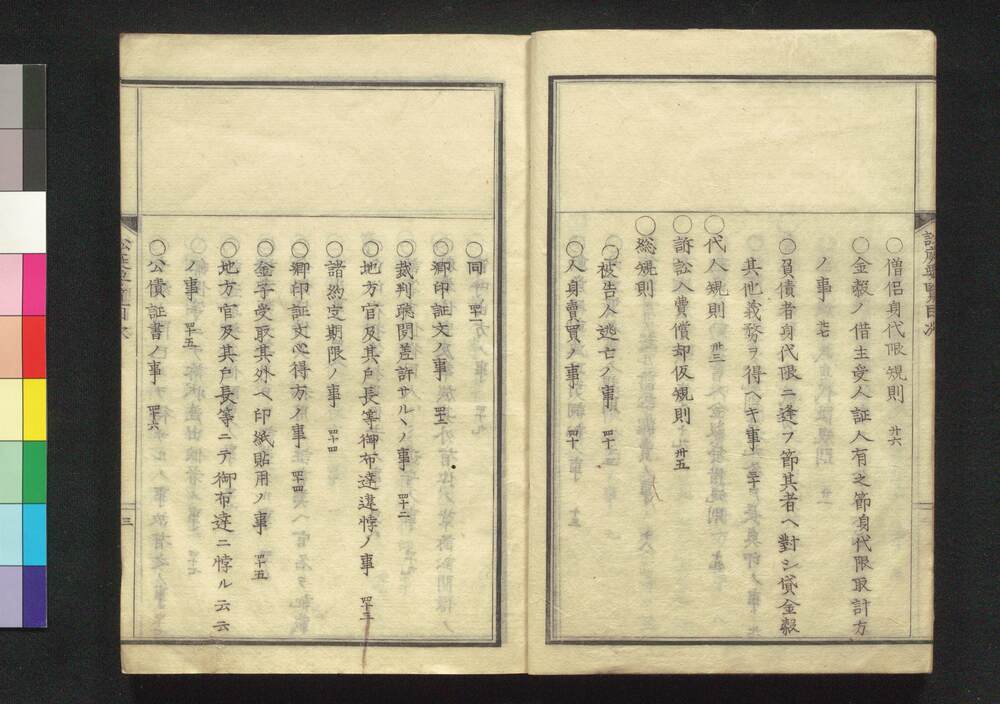 〇僧侶身代限規則 廿六
〇金穀ノ借主受人証人有之節身代限取計方
ノ事 廿七
〇負債者身代限ニ逢フ節其者ヘ對シ貸金穀
其他義務ヲ得ヘキ事 三十
〇代人規則 卅三
〇訴訟入費償却仮規則 卅五
〇総規則
〇被告人逃亡ノ事 四十
〇人身賣買ノ事 四十
〇同 四十一
〇郷印証文ノ事 四十二
〇裁判聴聞差許サルヽノ事 四十二
〇地方官及其戸長等御布達違悖ノ事 四十三
〇諸約定期限ノ事 四十四
〇郷印証文心得方ノ事 四十四
〇金子受取其外ヘ印紙貼用ノ事 四十五
〇地方官及其戸長等ニテ御布達ニ悖ル云云
ノ事 四十五
〇公債証書ノ事 四十六
三